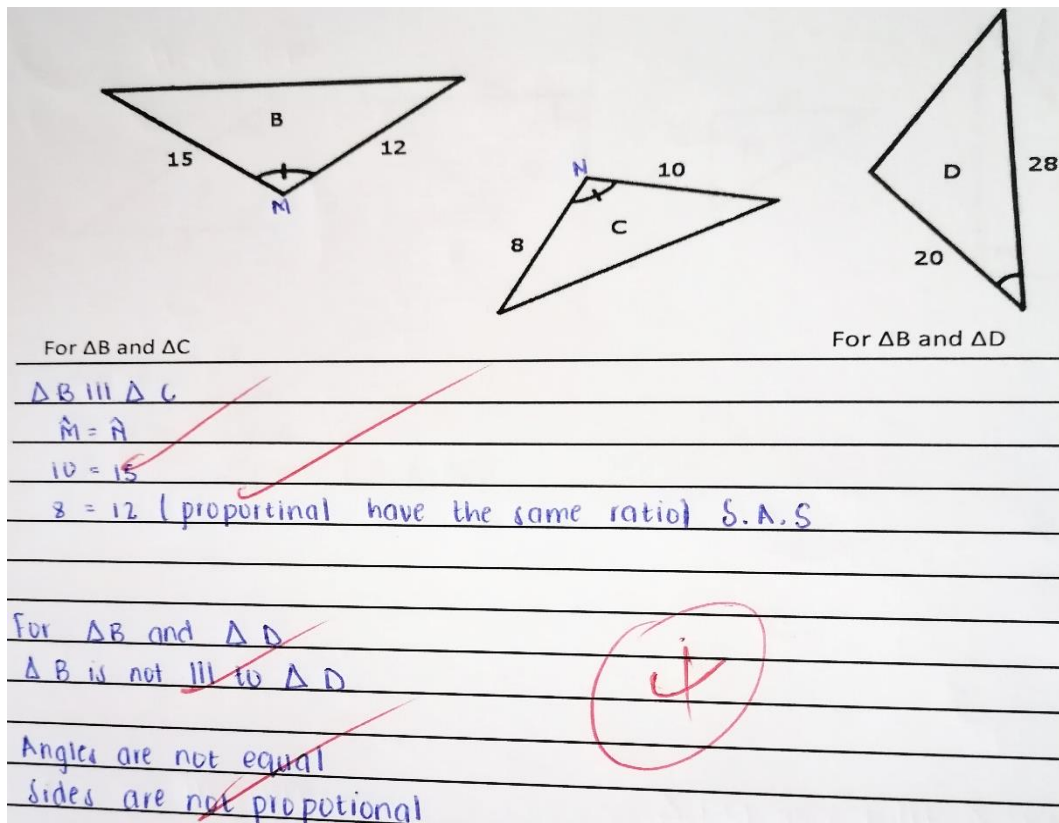 B
15
12
M
N
10
8
C
D
28
20
For ΔB and ΔC
For ΔB and ΔD
Δ B ||| Δ C
M̂ = N̂
10 = 15
8 = 12 ( proportinal have the same ratio) S.A.S
For ΔB and Δ D
Δ B is not ||| to Δ D
4
Angles are not equal
Sides are not propotional